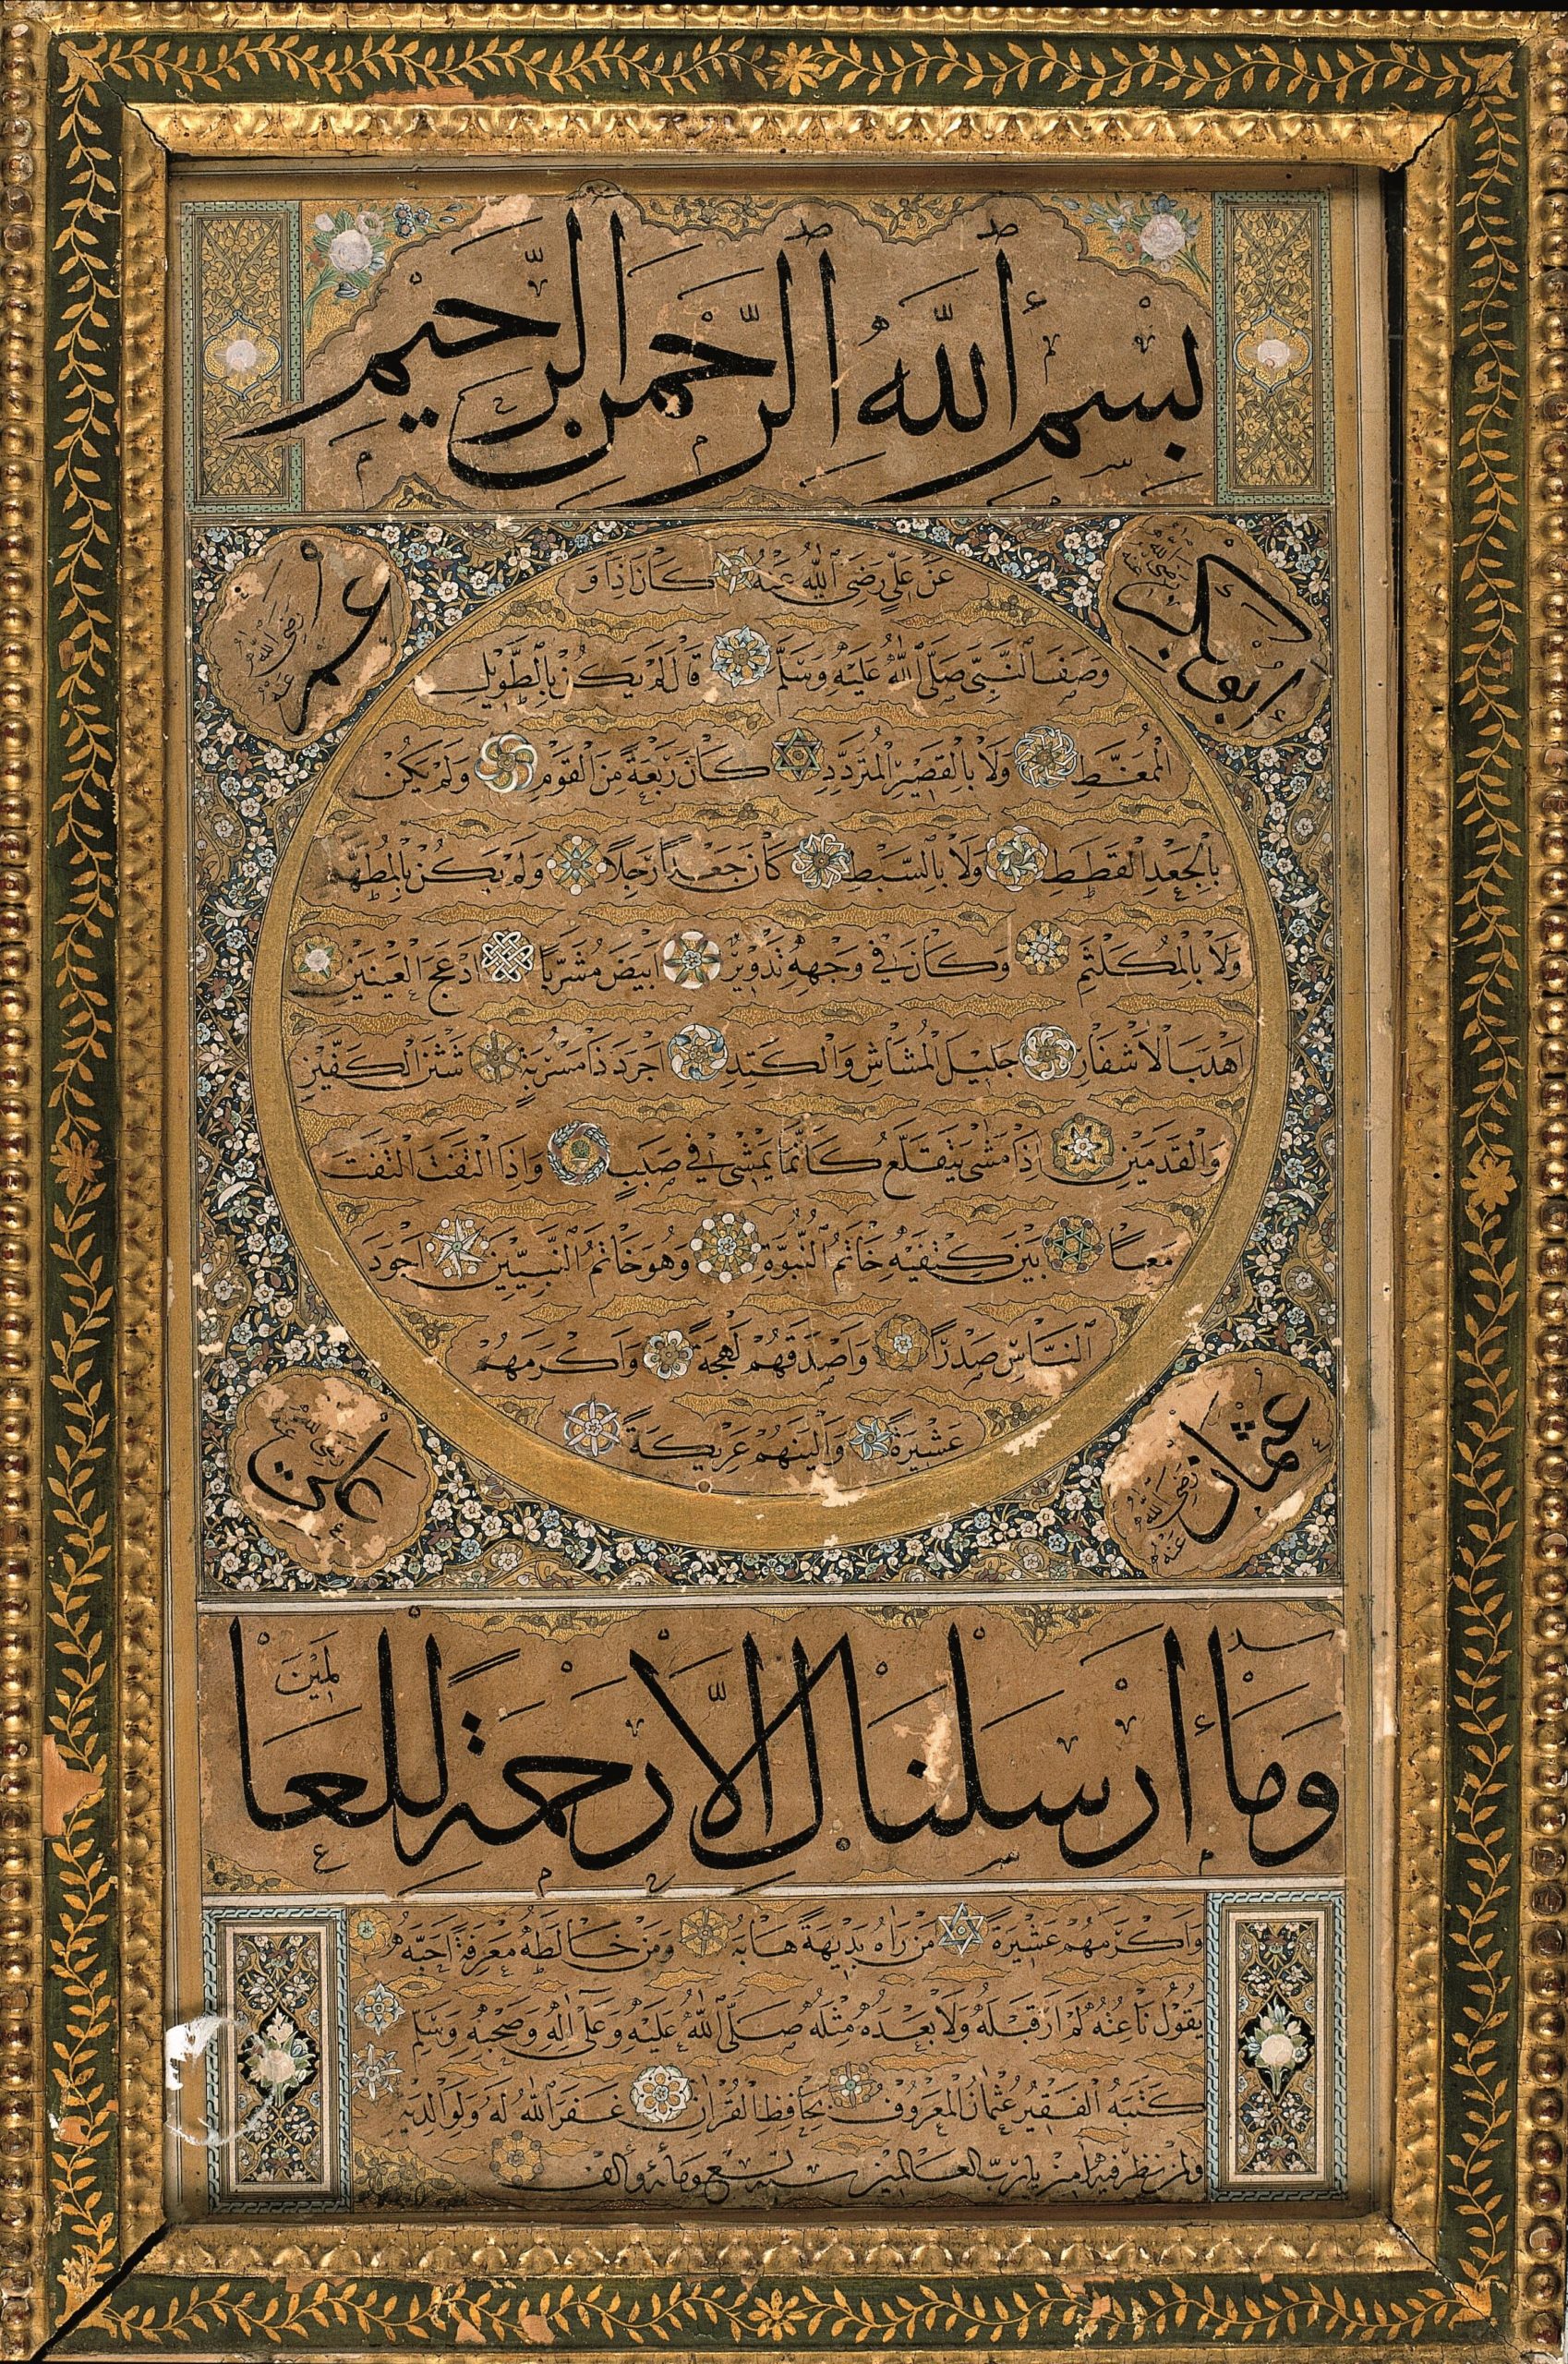 بسم الله الرحمن الرحيم
ابو بكر رضي الله عنه
عمر رضي الله عنه
عن علي رضي الله عنه كان اذا و
وصف النبي صلى الله عليه وسلم قال لم يكن بالطويل
الممغط ولا بالقصير المتردد كان ربعة من القوم ولم يكن
بالجعد القطط ولا بالسبط كان جعدا رجلا ولم يكن بالمطهم
ولا بالمكلثم وكان في وجهه تدوير ابيض مشربا ادعج العينين
اهدب الاشفار جليل المشاش والكتد اجرد ذا مسربة شثن الكفين
والقدمين اذا مشى يتقلع كانما يمشي في صبب واذا التفت التفت
معا بين كتفيه خاتم النبوة وهو خاتم النبيين اجود
الناس صدرا واصدقهم لهجة واكرمهم
عشيرة والينهم عريكة
عثمان رضي الله عنه
علي رضي الله عنه
وما أرسلناك الا رحمة للعالمين
واكرمهم عشيرة من راه بديهة هابه ومن خالطه معرفة احبه
يقول ناعته لم ار قبله ولا بعده مثله صلى الله عليه وعلى اله وصحبه وسلم
كتبه الفقير عثمان المعروف بحافظ القران غفر الله له ولوالديه
ولمن نظر فيه امين يا رب العالمين سنه تسع ومائة والف